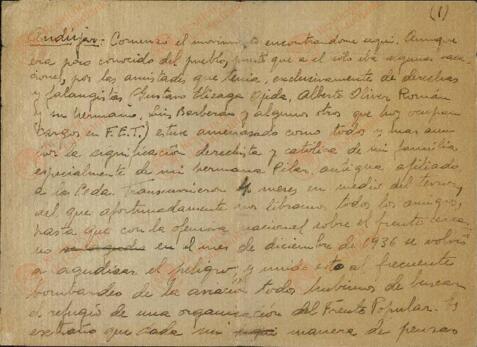 (1)
Andújar.- Comenzó el movimiento encontrándome aquí. Aunque
era poco conocido del pueblo, puesto que a el solo iba algunas vaca-
ciones, por las amistades que tenía, exclusivamente de derechas
y falangistas Gustavo Ojeda, Alberto Oliver Román
y su hermano, Luis Barberán y algunos otros que hoy ocupan
cargos en F.E.T.) estuve amenazado como todos y mas aun
por la significación derechista y católica de mi familia
especialmente de mi hermana Pilar, antigua afiliada
a la Ceda. Transcurrieron 4 meses en medio del terror,
del que afortunadamente nos libramos todos los amigos,
hasta que con la ofensiva nacional sobre el frente cerca-
no en el mes de diciembre de 1936 se volvió
a agudizar el peligro, y unido esto al frecuente
bombardeo de la aviación todos hubimos de buscar
el refugio de una organización del Frente Popular. Es
extraño que dada mi manera de pensar